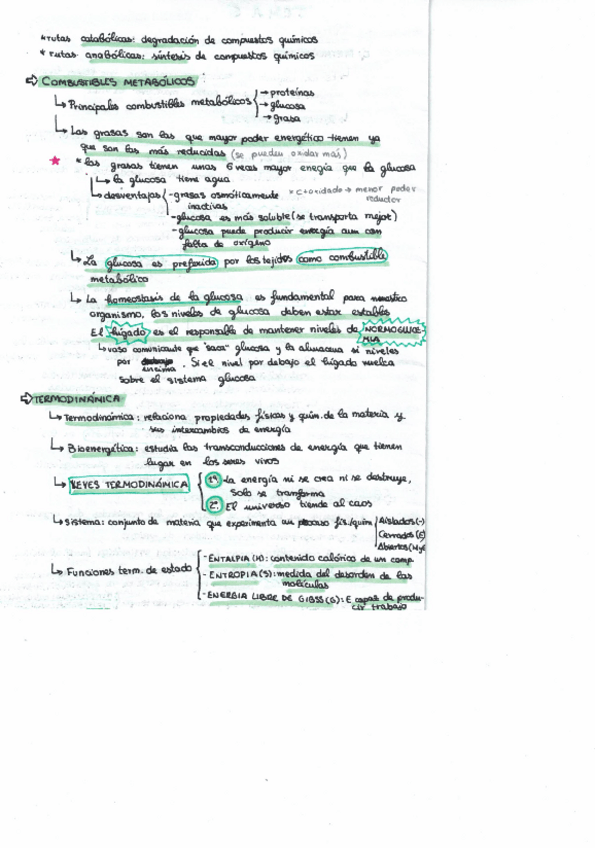 *rutas catabólicas: degradación de compuestos químicos
* rutas anabólicas: síntesis de compuestos químicos
⇨ COMBUSTIBLES METABÓLICOS
↳ Principales combustibles metabólicos { → proteínas
→ glucosa
→ grasa
↳ Las grasas son las que mayor poder energético tienen ya
que son las más reducidas (se pueden oxidar más)
★ * las grasas tienen unas 6 veces mayor energía que la glucosa
↳ la glucosa tiene agua
↳ desventajas { - grasas osmóticamente
inactivas
* C+oxidado → menor poder
reductor
- glucosa es más soluble (se transporta mejor)
- glucosa puede producir energía aun con
falta de oxígeno
↳ La glucosa es preferida por los tejidos como combustible
metabólico
↳ La homeostasis de la glucosa es fundamental para nuestro
organismo, los niveles de glucosa deben estar estables
El hígado es el responsable de mantener niveles de NORMOGLUCE-
MIA
↳ vaso comunicante que "saca" glucosa y la almacena si niveles
por encima. Si el nivel por debajo el hígado vuelca
sobre el sistema glucosa
⇨ TERMODINÁMICA
↳ Termodinámica: relaciona propiedades físicas y quím. de la materia y
sus intercambios de energía
↳ Bioenergética: estudia las transconducciones de energía que tienen
lugar en los seres vivos
↳ LEYES TERMODINÁMICA { 1ª La energía ni se crea ni se destruye,
solo se transforma
2ª El universo tiende al caos
↳ Sistema: conjunto de materia que experimenta un proceso fís./quím { Aislados (-)
Cerrados (E)
Abiertos (M y E
↳ Funciones term. de estado { - ENTALPIA (H): contenido calórico de un comp
- ENTROPIA (S): medida del desorden de las
moléculas
- ENERGIA LIBRE DE GIBSS (G): E capaz de produ-
cir trabajo